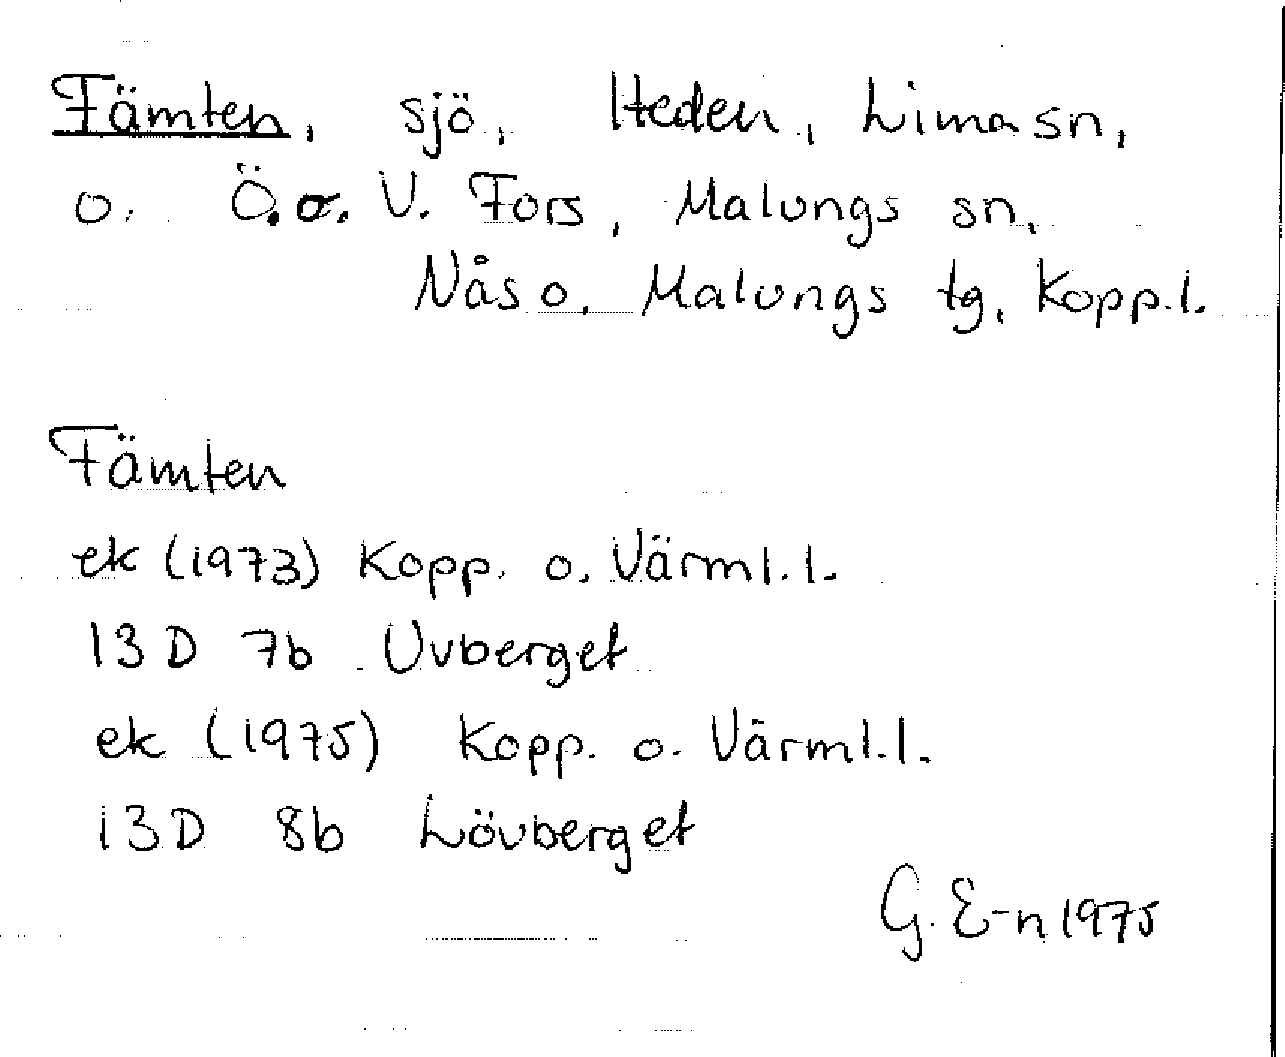 Fämten, sjö, Heden, Lima sn,
o. Ö. o. V. Fors, Malungs sn,
Nås o. Malungs tg, Kopp.l.
Fämten
ek (1973) Kopp. o. Värml.l.
13 D 7b Uvberget
ek (1975) Kopp. o. Värml.l.
13D 8b Lövberget
G. E-n 1975